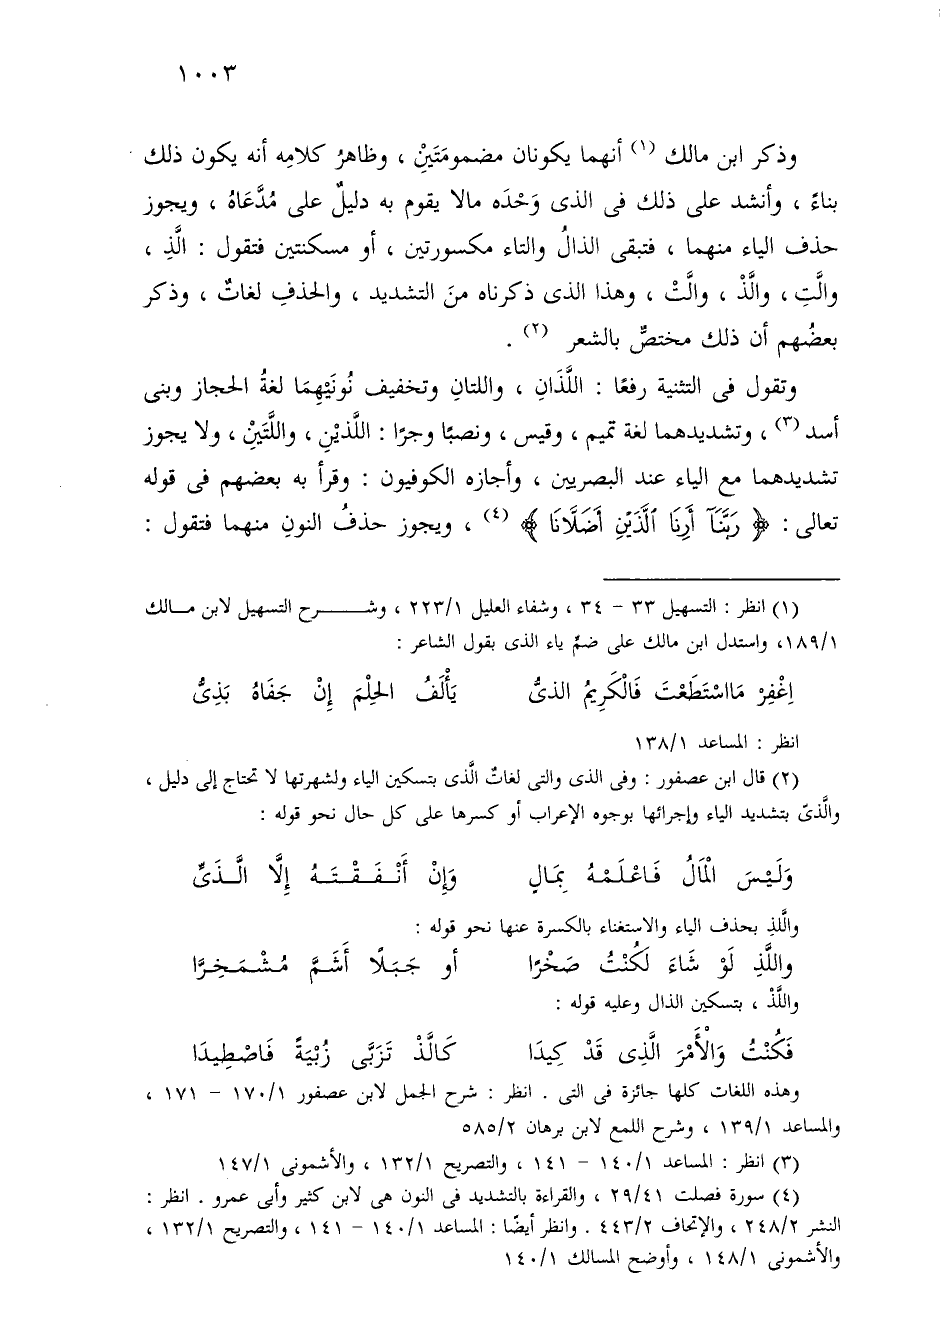 ١٠٠٣
وذكر ابن مالك (١) أنهما يكونان مضمومَتَيْنِ ، وظاهرُ كلامِه أنه يكون ذلك
بناءً ، وأنشد على ذلك فى الذى وَحْدَه مالا يقوم به دليلٌ على مُدَّعَاهُ ، ويجوز
حذف الياء منهما ، فتبقى الذالُ والتاء مكسورتين ، أو مسكنتين فتقول : الَّذِ ،
والَّتِ ، والَّذْ ، والَّتْ ، وهذا الذى ذكرناه منَ التشديد ، والحذفِ لغاتٌ ، وذكر
بعضُهم أن ذلك مختصٌّ بالشعر (٢) .
وتقول فى التثنية رفعًا : اللَّذَانِ ، واللتانِ وتخفيف نُونَيْهِمَا لغةُ الحجاز وبنى
أسد (٣) ، وتشديدهما لغة تميم ، وقيس ، ونصبًا وجرًا : اللَّذيْنِ ، واللَّتَيَنْ ، ولا يجوز
تشديدهما مع الياء عند البصريين ، وأجازه الكوفيون : وقرأ به بعضهم فى قوله
تعالى : ﴿ رَبَّنَآ أَرِنَا ٱلَّذَيْنِ أَضَلَّانَا ﴾ (٤) ، ويجوز حذفُ النونِ منهما فتقول :
(١) انظر : التسهيل ٣٣ – ٣٤ ، وشفاء العليل ٢٢٣/١ ، وشـــــرح التسهيل لابن مـالك
١٨٩/١، واستدل ابن مالك على ضمّ ياء الذى بقول الشاعر :
اِغْفِرْ مَااسْتَطَعْتَ فَالْكَرِيمُ الذىُّ يَأْلَفُ الحِلْمَ إِنْ جَفَاهُ بَذِىُّ
انظر : المساعد ١٣٨/١
(٢) قال ابن عصفور : وفى الذى والتى لغاتٌ الَّذى بتسكين الياء ولشهرتها لا تحتاج إلى دليل ،
والَّذىّ بتشديد الياء وإجرائها بوجوه الإعراب أو كسرها على كل حال نحو قوله :
وَلَيْسَ الْمَالُ فَاعْلَمْهُ بِمَالٍ وَإِنْ أَنْـفَـقْـتَـهُ إِلَّا الَّـذَىِّ
والَّلذِ بحذف الياء والاستغناء بالكسرة عنها نحو قوله :
واللَّذِ لَوْ شَاءَ لَكُنْتُ صَخْرًا أو جَبَلًا أَشَمَّ مُشْمَخِرَّا
واللَّذْ ، بتسكين الذال وعليه قوله :
فَكُنْتُ وَالْأَمْرَ الَّذِى قَدْ كِيدَا كَالَّذْ تَزَبَّى زُبْيَةً فَاصْطِيدَا
وهذه اللغات كلها جائزة فى التى . انظر : شرح الجمل لابن عصفور ١٧٠/١ – ١٧١ ،
والمساعد ١٣٩/١ ، وشرح اللمع لابن برهان ٥٨٥/٢
(٣) انظر : المساعد ١٤٠/١ – ١٤١ ، والتصريح ١٣٢/١ ، والأشمونى ١٤٧/١
(٤) سورة فصلت ٢٩/٤١ ، والقراءة بالتشديد فى النون هى لابن كثير وأبى عمرو . انظر :
النشر ٢٤٨/٢ ، والإتحاف ٤٤٣/٢ . وانظر أيضًا : المساعد ١٤٠/١ – ١٤١ ، والتصريح ١٣٢/١ ،
والأشمونى ١٤٨/١ ، وأوضح المسالك ١٤٠/١